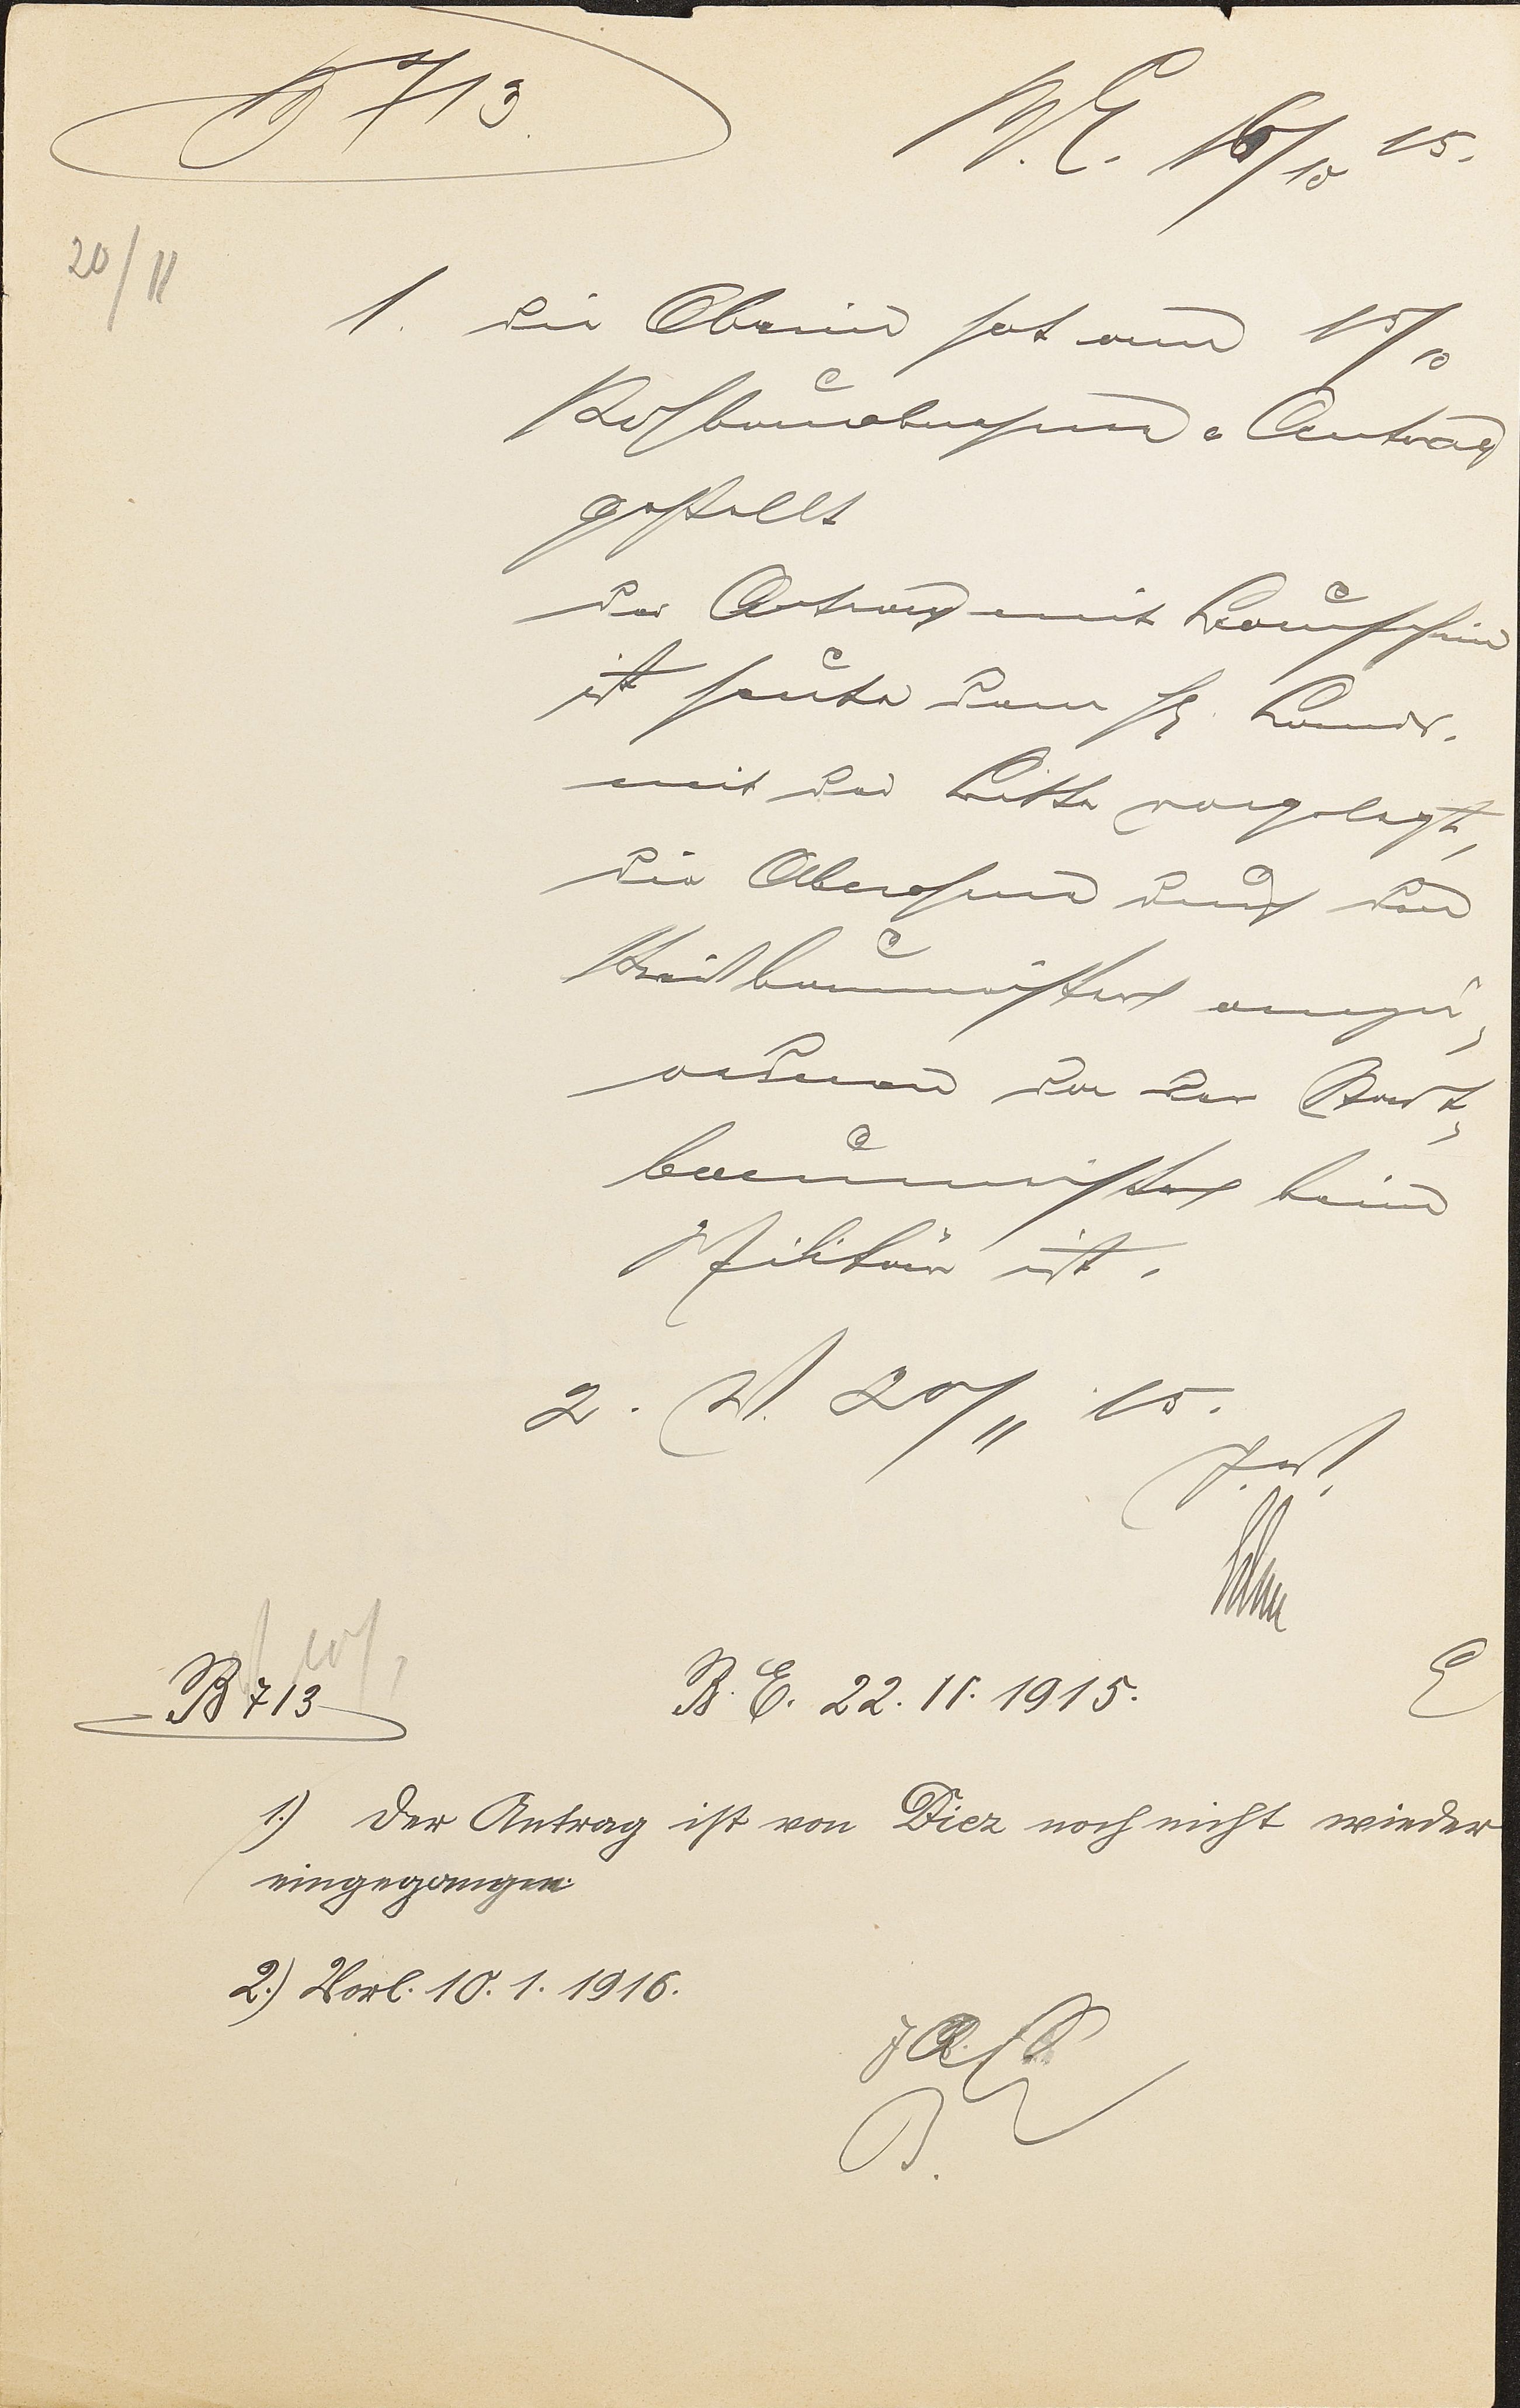 B 713.
B. E. 16/10 15.
20/11
1. Die Oberin hat am 15/10
Rohbauabnahme-Antrag
gestellt
Der Antrag mit Bauschein
ist heute dem H. Landr.
mit der Bitte vorgelegt,
die Abnahme durch den
Kreisbaumeister anzu-
ordnen da der Stadt-
baumeister beim
Militär ist.
2. W. 20/11 15.
J. V.
B 713
B. E. 22. 11. 1915.
E
1.) Der Antrag ist von Diez noch nicht wieder
eingegangen
2.) Vorl. 10. 1. 1916.